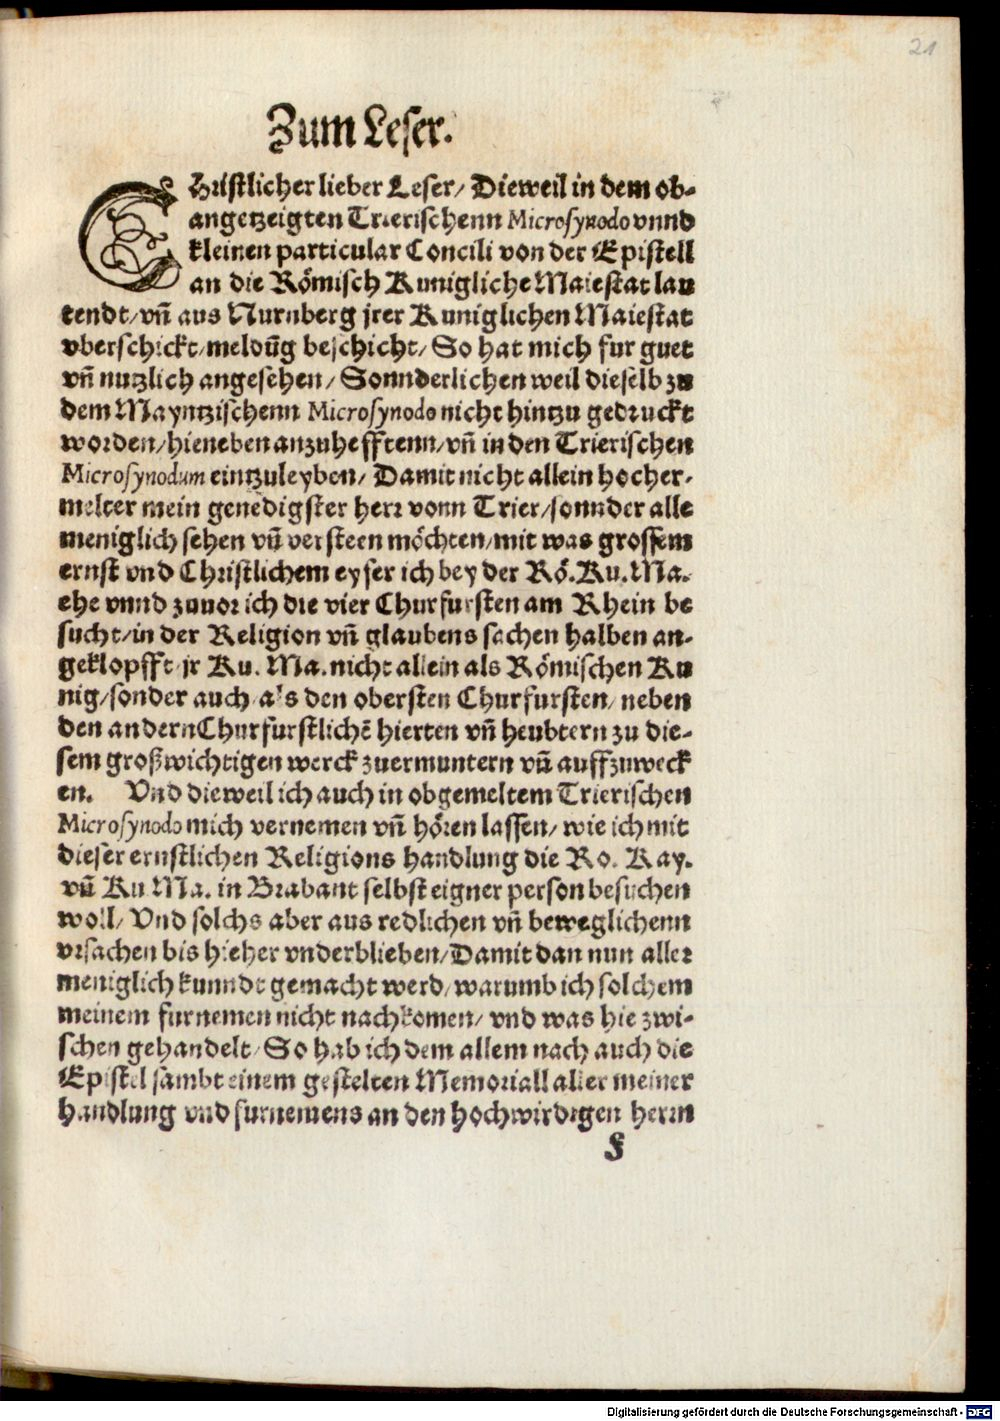 21
Zum Leser.
CHristlicher lieber Leser/ Dieweil in dem ob-
angetzeigten Trierischenn Microsynodo vnnd
kleinen particular Concili von der Epistell
an die Römisch Kunigliche Maiestat lau
tendt/ vñ aus Nurnberg jrer Kuniglichen Maiestat
vberschickt/ meldũg beschicht/ So hat mich fur guet
vñ nutzlich angesehen/ Sonnderlichen weil dieselb zu
dem Mayntzischenn Microsynodo nicht hintzu gedruckt
worden/ hieneben anzuhefftenn/ vñ in den Trierischen
Microsynodum eintzuleyben/ Damit nicht allein hocher-
melter mein genedigster herr vonn Trier/ sonnder alle
meniglich sehen vñ versteen möchten/ mit was grossem
ernst vnd Christlichem eyfer ich bey der Rö. Ku. Ma.
ehe vnnd zuuor ich die vier Churfursten am Rhein be
sucht/ in der Religion vñ glaubens sachen halben an-
geklopfft jr Ku. Ma. nicht allein als Römischen Ku
nig/ sonder auch als den obersten Churfursten/ neben
den andern Churfurstlichẽ hierten vñ heubtern zu die-
sem großwichtigen werck zuermuntern vñ auffzuweck
en. Vnd dieweil ich auch in obgemeltem Trierischen
Microsynodo mich vernemen vñ hören lassen/ wie ich mit
dieser ernstlichen Religions handlung die Ro. Kay.
vñ Ku Ma. in Brabant selbst eigner person besuchen
woll/ Vnd solchs aber aus redlichen vñ beweglichenn
vrsachen bis hieher vnderblieben/ Damit dan nun aller
meniglich kunndt gemacht werd/ warumb ich solchem
meinem furnemen nicht nachkomen/ vnd was hie zwi-
schen gehandelt/ So hab ich dem allem nach auch die
Epistel sambt einem gestelten Memoriall aller meiner
handlung vnd furnemens an den hochwirdigen herrn
F
Digitalisierung gefördert durch die Deutsche Forschungsgemeinschaft - DFG